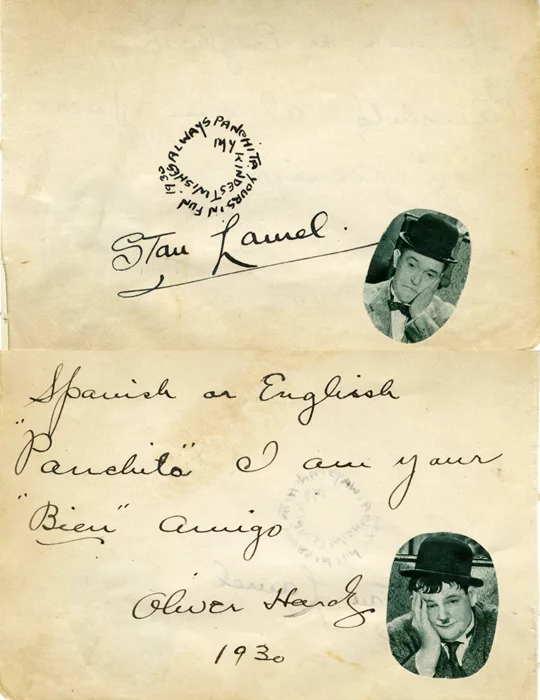 MY KINDEST WISHES ALWAYS PANCHITA YOURS IN FUN 1930
Stan Laurel.
Spanish or English
"Panchita" I am your
"Bien" Amigo
Oliver Hardy
1930